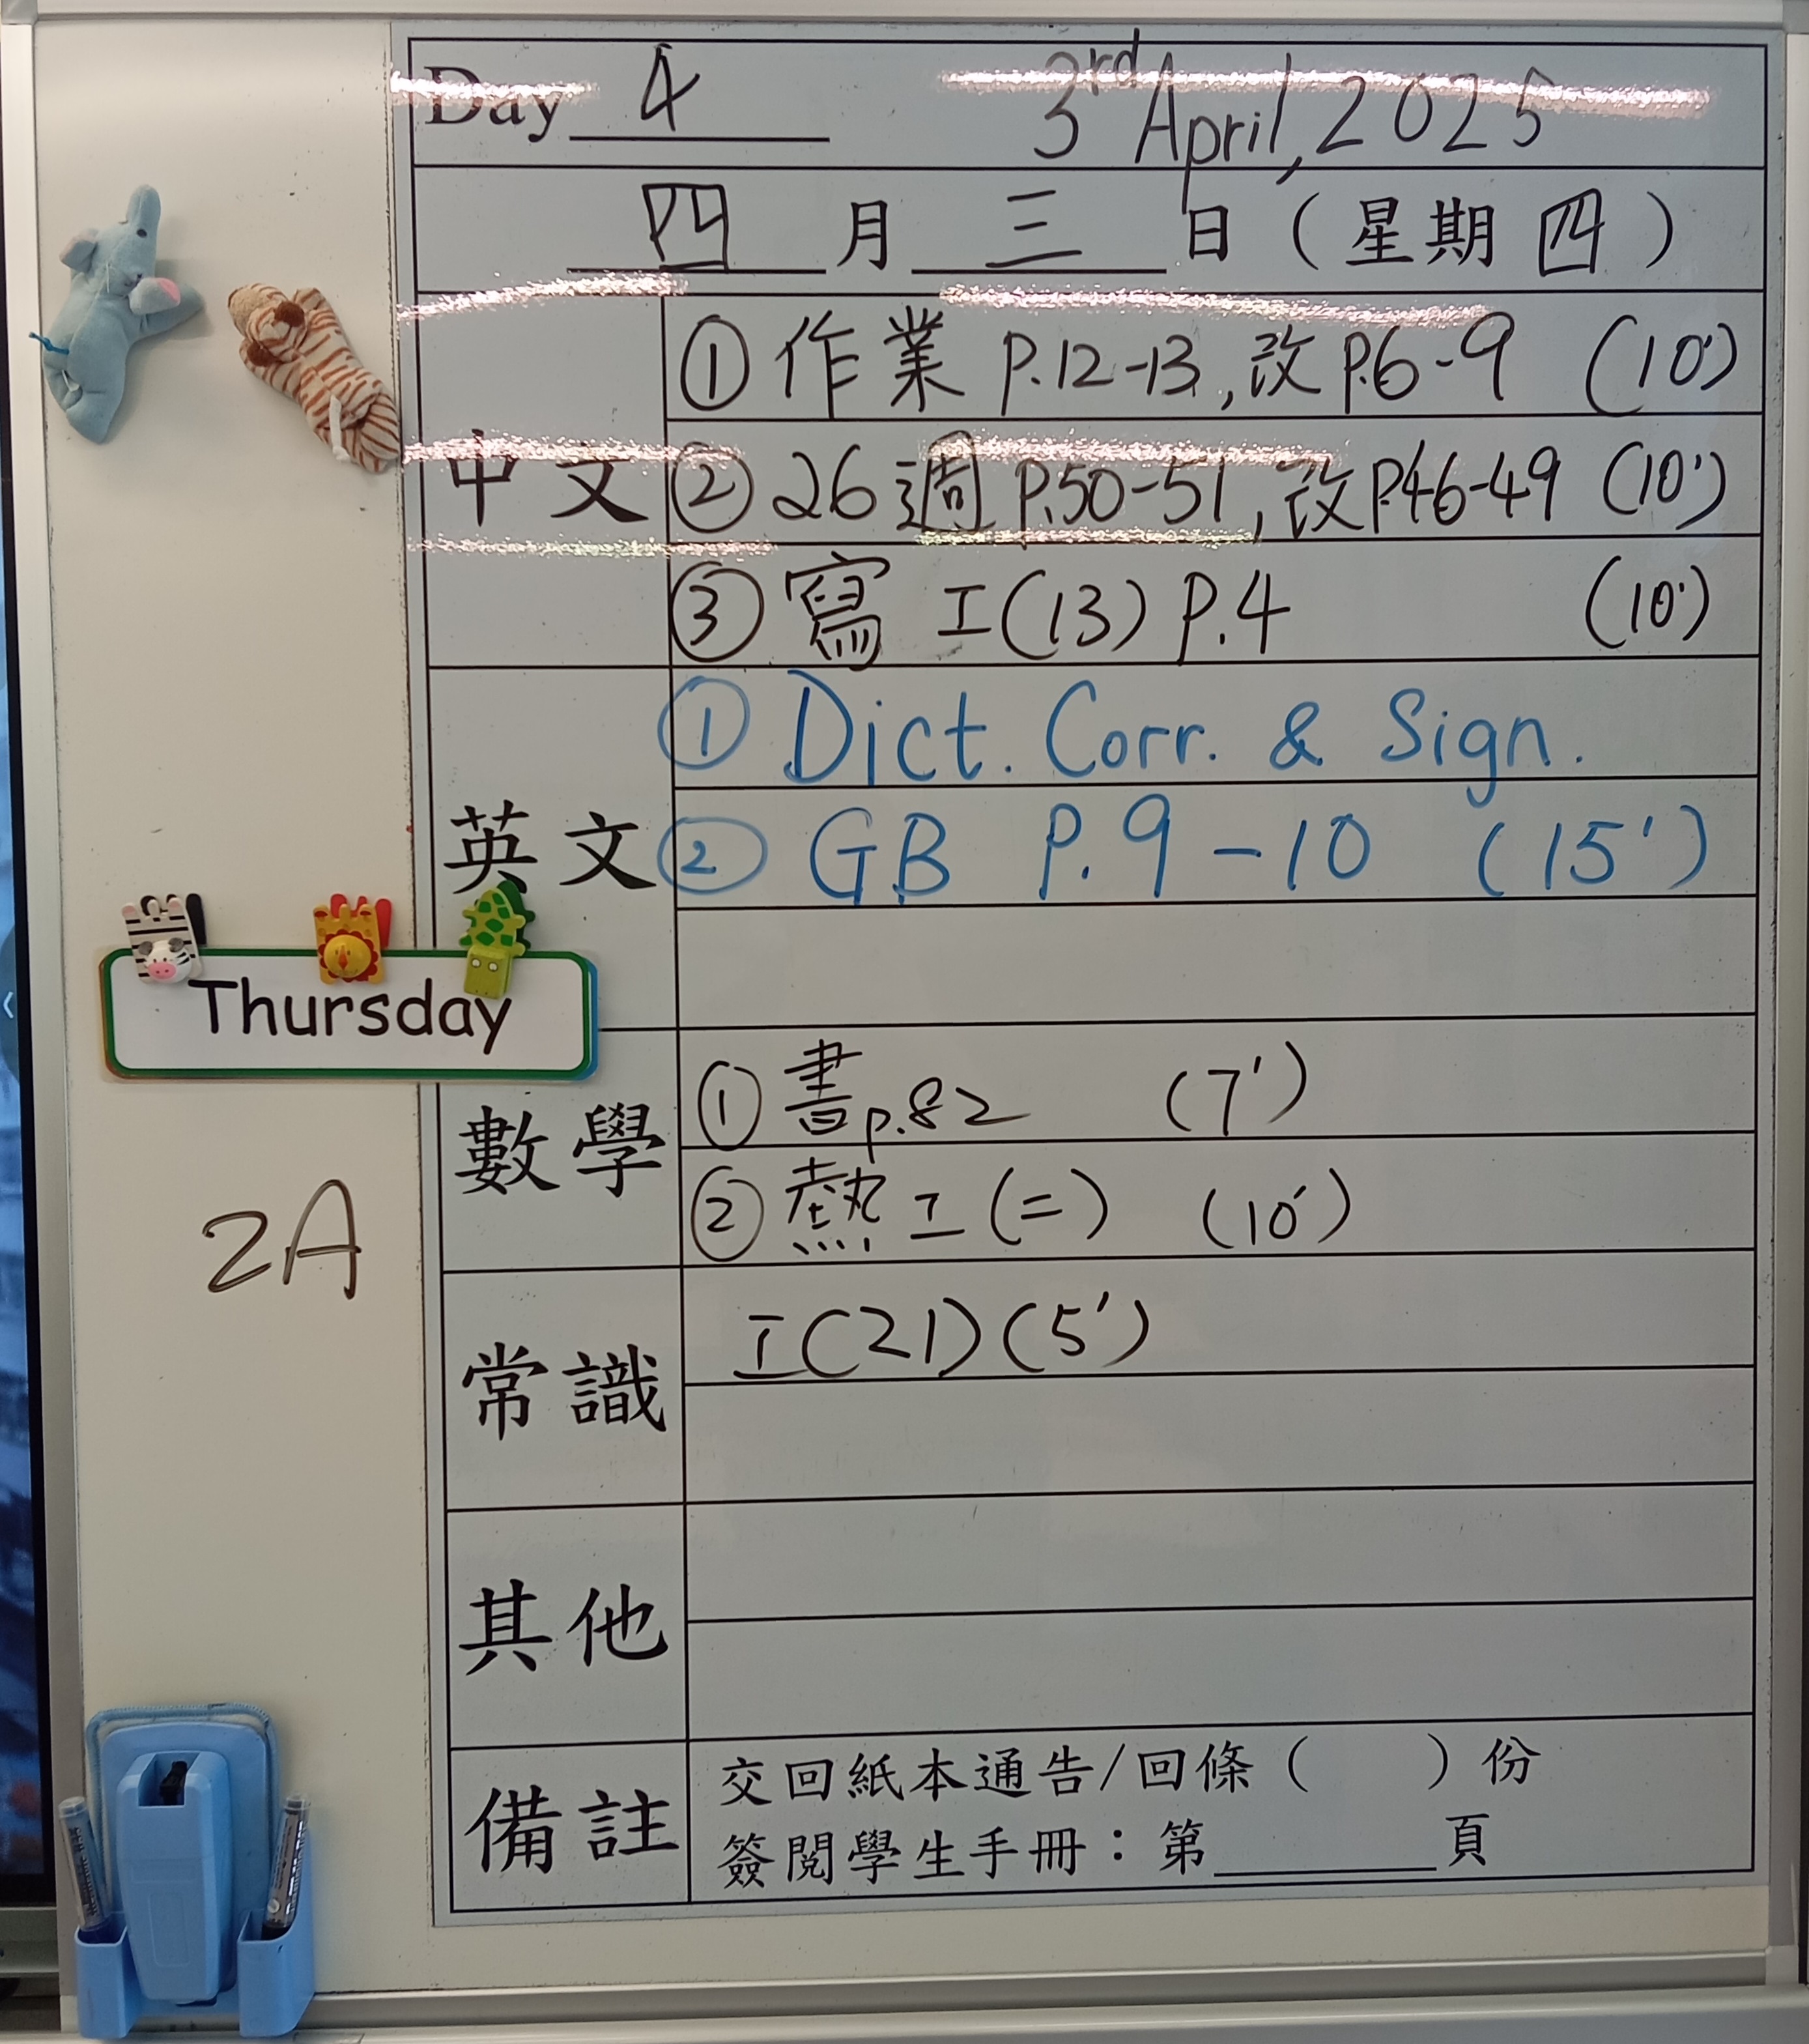 Day 4 3rd April, 2025
四 月 三 日 ( 星期 四 )
中文
① 作業 P.12-13, 改 P.6-9 (10')
② 26週 P.50-51, 改 P.46-49 (10')
③ 寫 工(13) P.4 (10')
英文
① Dict. Corr. & Sign.
② GB P. 9-10 (15')
Thursday
數學
① 書 p.82 (7')
② 熱工(二) (10')
2A
常識
工(21)(5')
其他
備註
交回紙本通告/回條 ( ) 份
簽閱學生手冊：第______頁